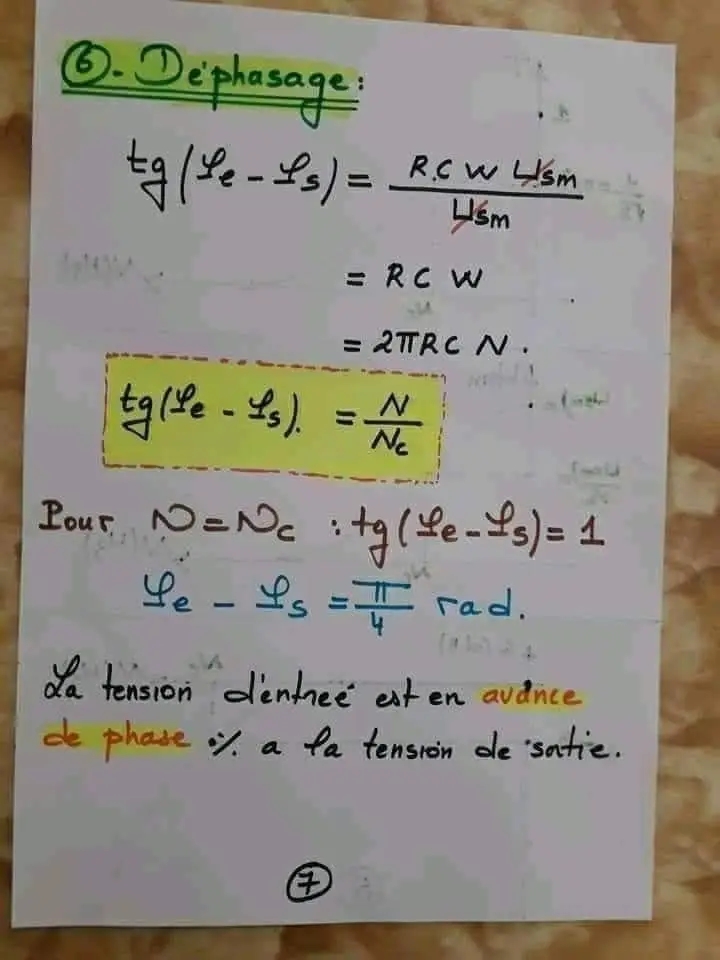 6. Déphasage:
tg(φe - φs) = R.C W Usm / Usm
= R C W
= 2πRC N.
tg(φe - φs). = N / Nc
Pour N = Nc : tg(φe - φs) = 1
φe - φs = π / 4 rad.
La tension d'entreé est en avance
de phase ٪ a la tension de sotie.
7